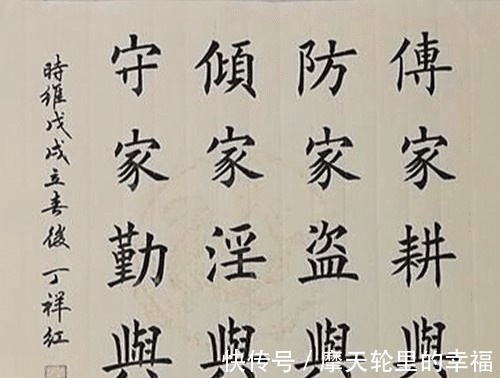 傳家耕與
防家盜與
傾家淫與
守家勤與
時維戊戌立春後丁祥紅
快传号/摩天轮里的幸福